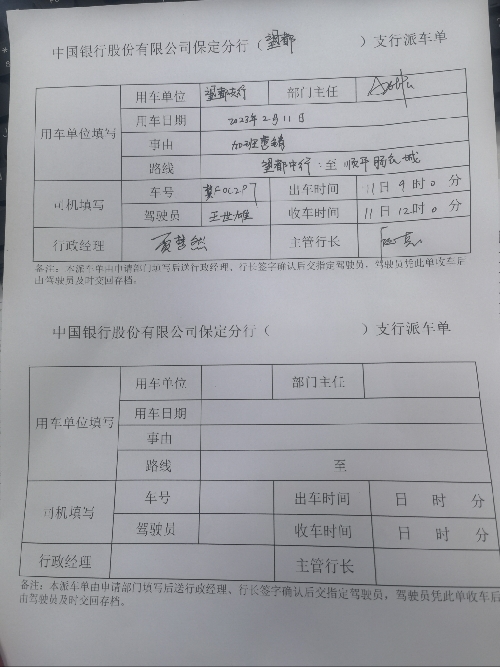 中国银行股份有限公司保定分行（望都）支行派车单
用车单位填写 用车单位 望都支行 部门主任
用车日期 2023年2月11日
事由 加班营销
路线 望都中行 至 顺平
司机填写 车号 冀F0C297 出车时间 11日9时0分
驾驶员 王世雄 收车时间 11日12时0分
行政经理 贾慧然 主管行长
备注：本派车单由申请部门填写后送行政经理、行长签字确认后交指定驾驶员，驾驶员凭此单收车后
由驾驶员及时交回存档。
中国银行股份有限公司保定分行（ ）支行派车单
用车单位填写 用车单位 部门主任
用车日期
事由
路线 至
司机填写 车号 出车时间 日 时 分
驾驶员 收车时间 日 时 分
行政经理 主管行长
备注：本派车单由申请部门填写后送行政经理、行长签字确认后交指定驾驶员，驾驶员凭此单收车后
由驾驶员及时交回存档。